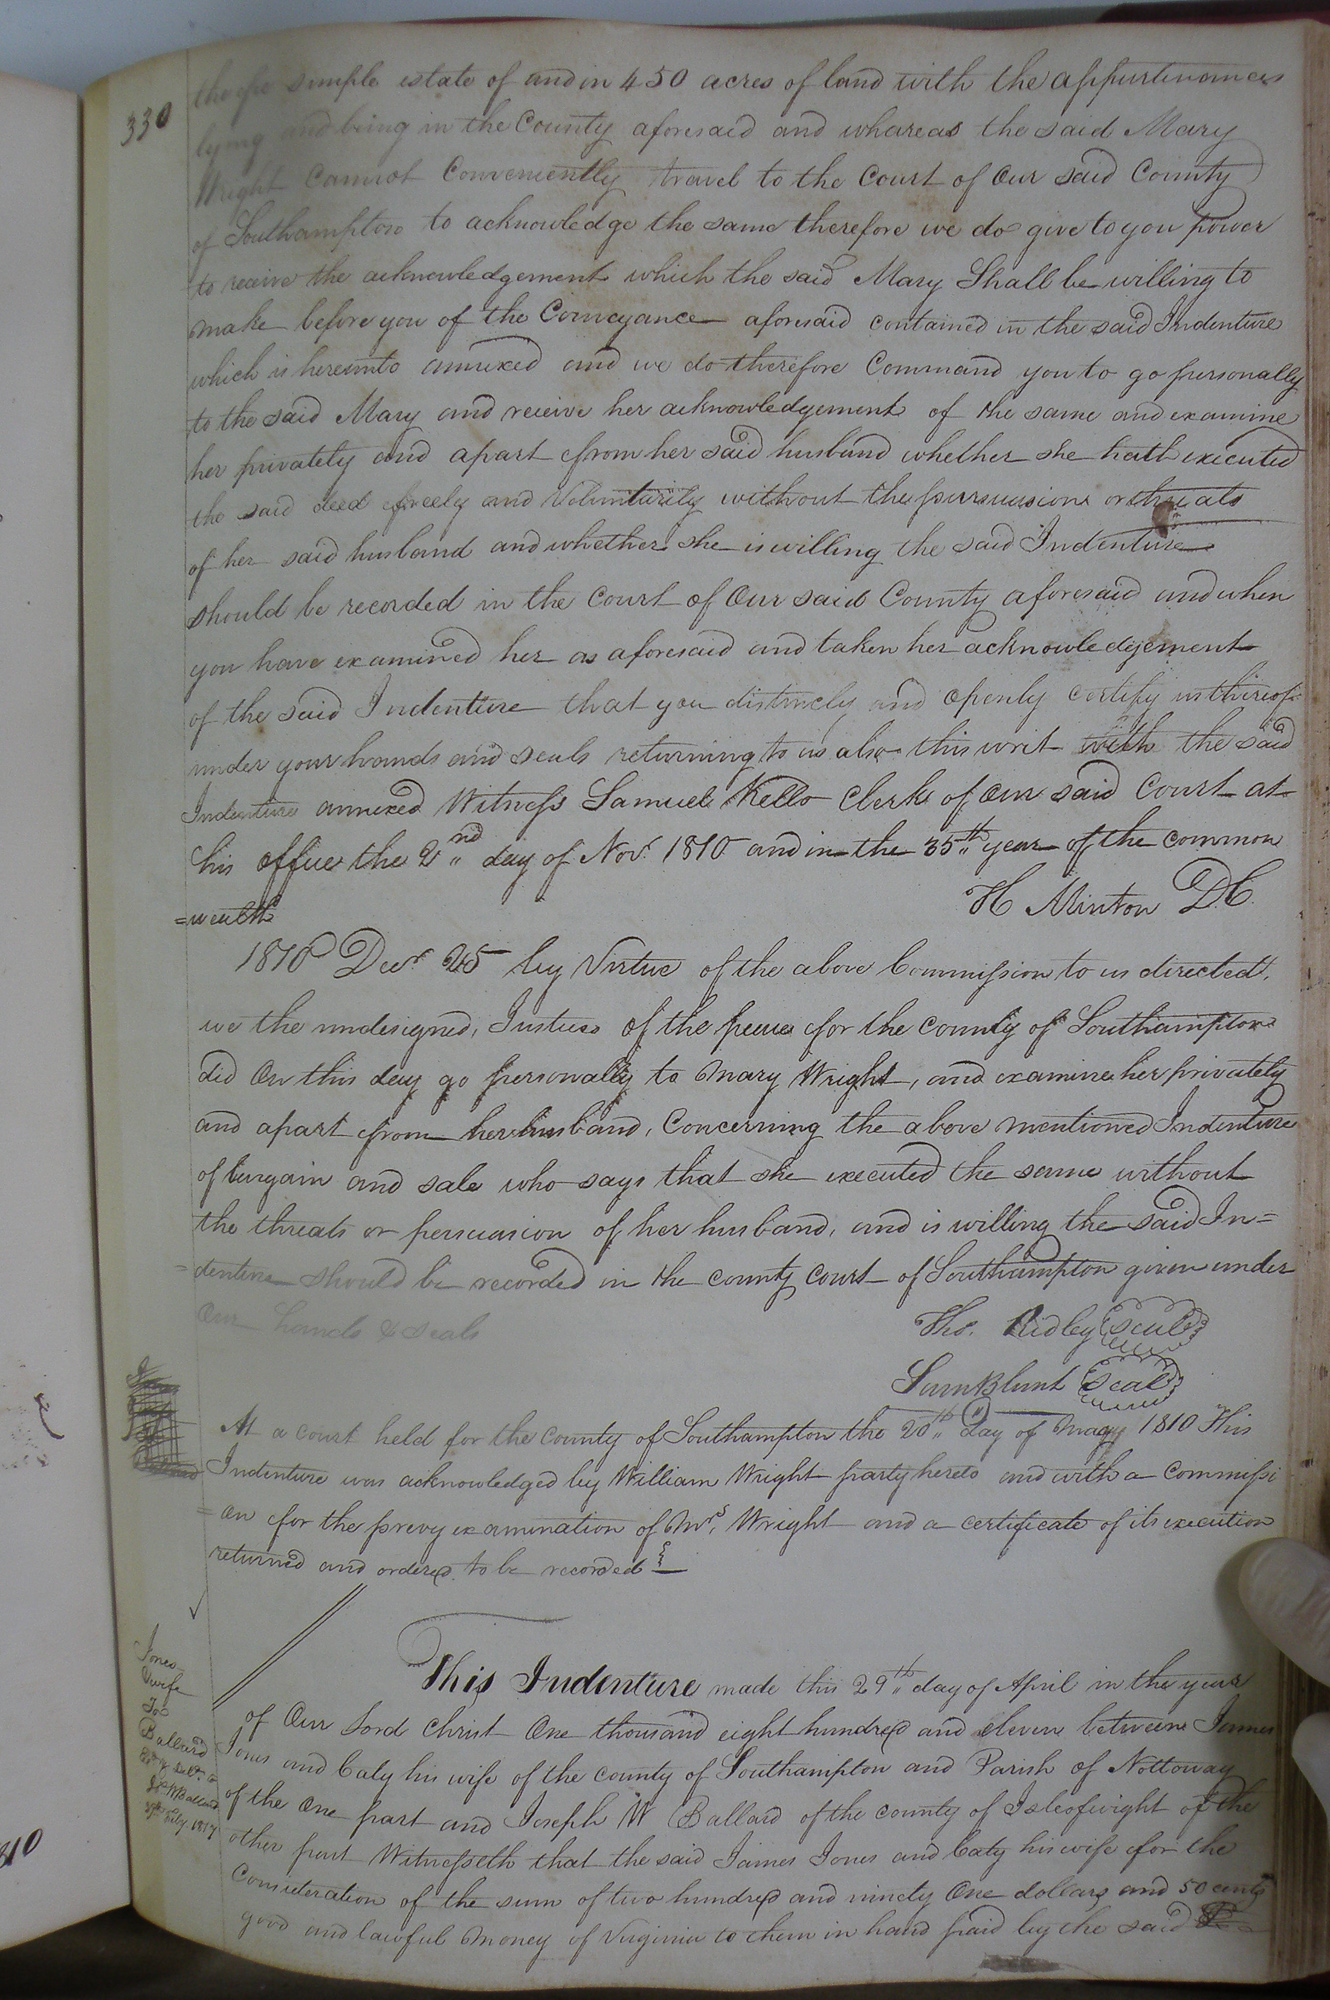 330
the fee simple estate of and in 450 acres of land with the appurtenances
lying and being in the County aforesaid and whareas the said Mary
Wright Cannot Conveniently travel to the Court of Our said County
of Southampton to acknowledge the same therefore we do give to you power
to receive the acknowledgement which the said Mary Shall be willing to
make before you of the Conveyance aforesaid contained in the said Indenture
which is hereunto annexed and we do therefore Command you to go personally
to the said Mary and receive her acknowledgement of the same and examine
her privately and apart from her said husband whether she hath executed
the said deed freely and Voluntarily without the persuasions or threats
of her said husband and whether she is willing the said Indenture
should be recorded in the Court of Our said County aforesaid and when
you have examined her as aforesaid and taken her acknowledgement
of the said Indenture that you distincly and openly certify us thereof
under your hands and seals returning to us also this writ with the said
Indenture annexed Witness Samuel Kello Clerk of Our said Court at
his office the 2nd day of Nov. 1810 and in the 35th year of the common
=wealth
H Minton D.C.
1810 Decr 25 by Virtue of the above Commission to us directed,
we the undesigned, Justices of the peace for the county of Southampton
did On this day go personally to Mary Wright, and examine her privately
and apart from her husband, Concerning the above mentioned Indenture
of bargain and sale who says that she executed the same without
the threats or persuasion of her husband, and is willing the said In=
=denture should be recorded in the county court of Southampton given under
Our hands & seals
Tho. Ridley seal
Sam Blunt seal
At a court held for the County of Southampton the 20th day of May 1810 This
Indenture was acknowledged by William Wright party hereto and with a Commissi
=on for the prevy examination of Mrs. Wright and a certificate of its execution
returned and ordered to be recorded
Jones
& wife
To
Ballard
July 1817
This Indenture made this 29th day of April in the year
of Our Lord Christ One thousand eight hundred and eleven between James
Jones and Caty his wife of the county of Southampton and Parish of Nottoway
of the One part and Joseph W Ballard of the county of Isleofwight of the
other part Witnesseth that the said James Jones and Caty his wife for the
Consideration of the sum of two hundred and ninety One dollars and 50 cents
good and lawful Money of Virginia to them in hand paid by the said